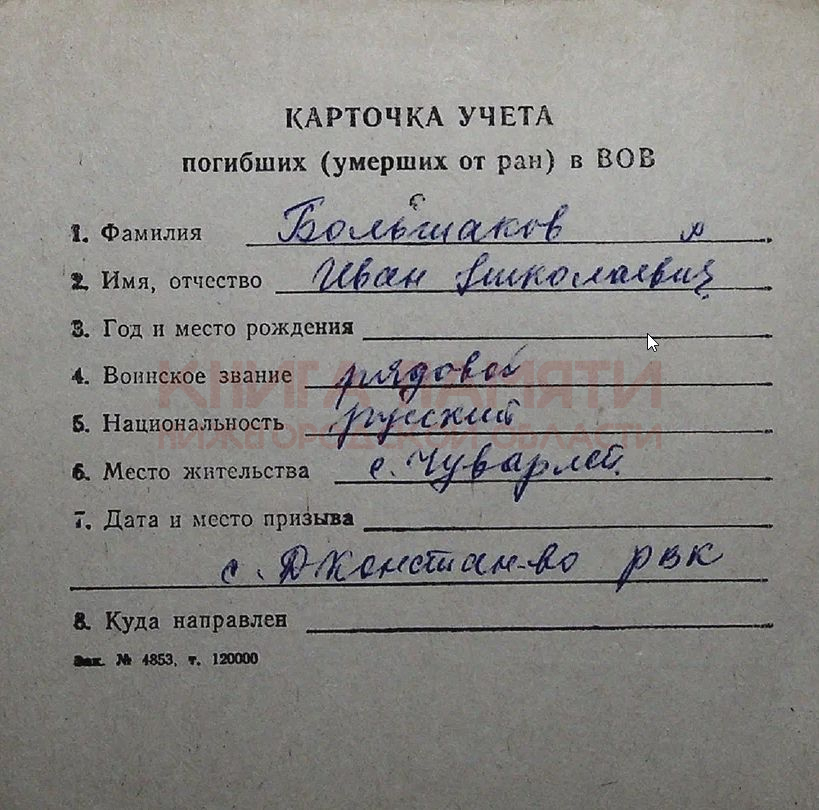 КАРТОЧКА УЧЕТА
погибших (умерших от ран) в ВОВ
1. Фамилия Большаков
2. Имя, отчество Иван Николаевич
3. Год и место рождения
4. Воинское звание рядовой
КНИГА ПАМЯТИ
5. Национальность русский
НИЖЕГОРОДСКОЙ ОБЛАСТИ
6. Место жительства с. Чуварлей
7. Дата и место призыва
с. ДКонстан-во РВК
8. Куда направлен
Зак. № 4853, т. 120000